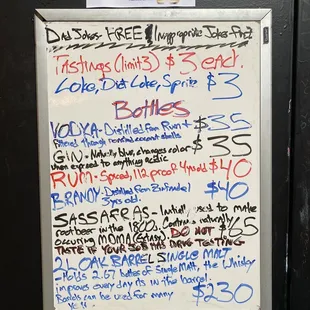 Dad Jokes- FREE Inappropriate Jokes first
Tastings (limit 3) $3 each
Coke, Diet Coke, Sprite $3
Bottles
VODKA- Distilled from $35
filtered through coconut shells
GIN- Naturally blue, changes color $35
when exposed to anything acidic
RUM- Spiced, 112 proof 4yrs old $40
BRANDY- Distilled from Zinfandel $40
3yrs old.
SASSAFRAS- Initially used to make
root beer in the 1800s. Contains naturally
occurring MDMA (Ectasy) DO NOT $65
TASTE IF YOUR JOB HAS DRUG TESTING
2L OAK BARREL SINGLE MALT
-Holds 2.67 bottles of Single Malt, the Whisky
improves every day its in the barrel.
Barrels can be used for many $230